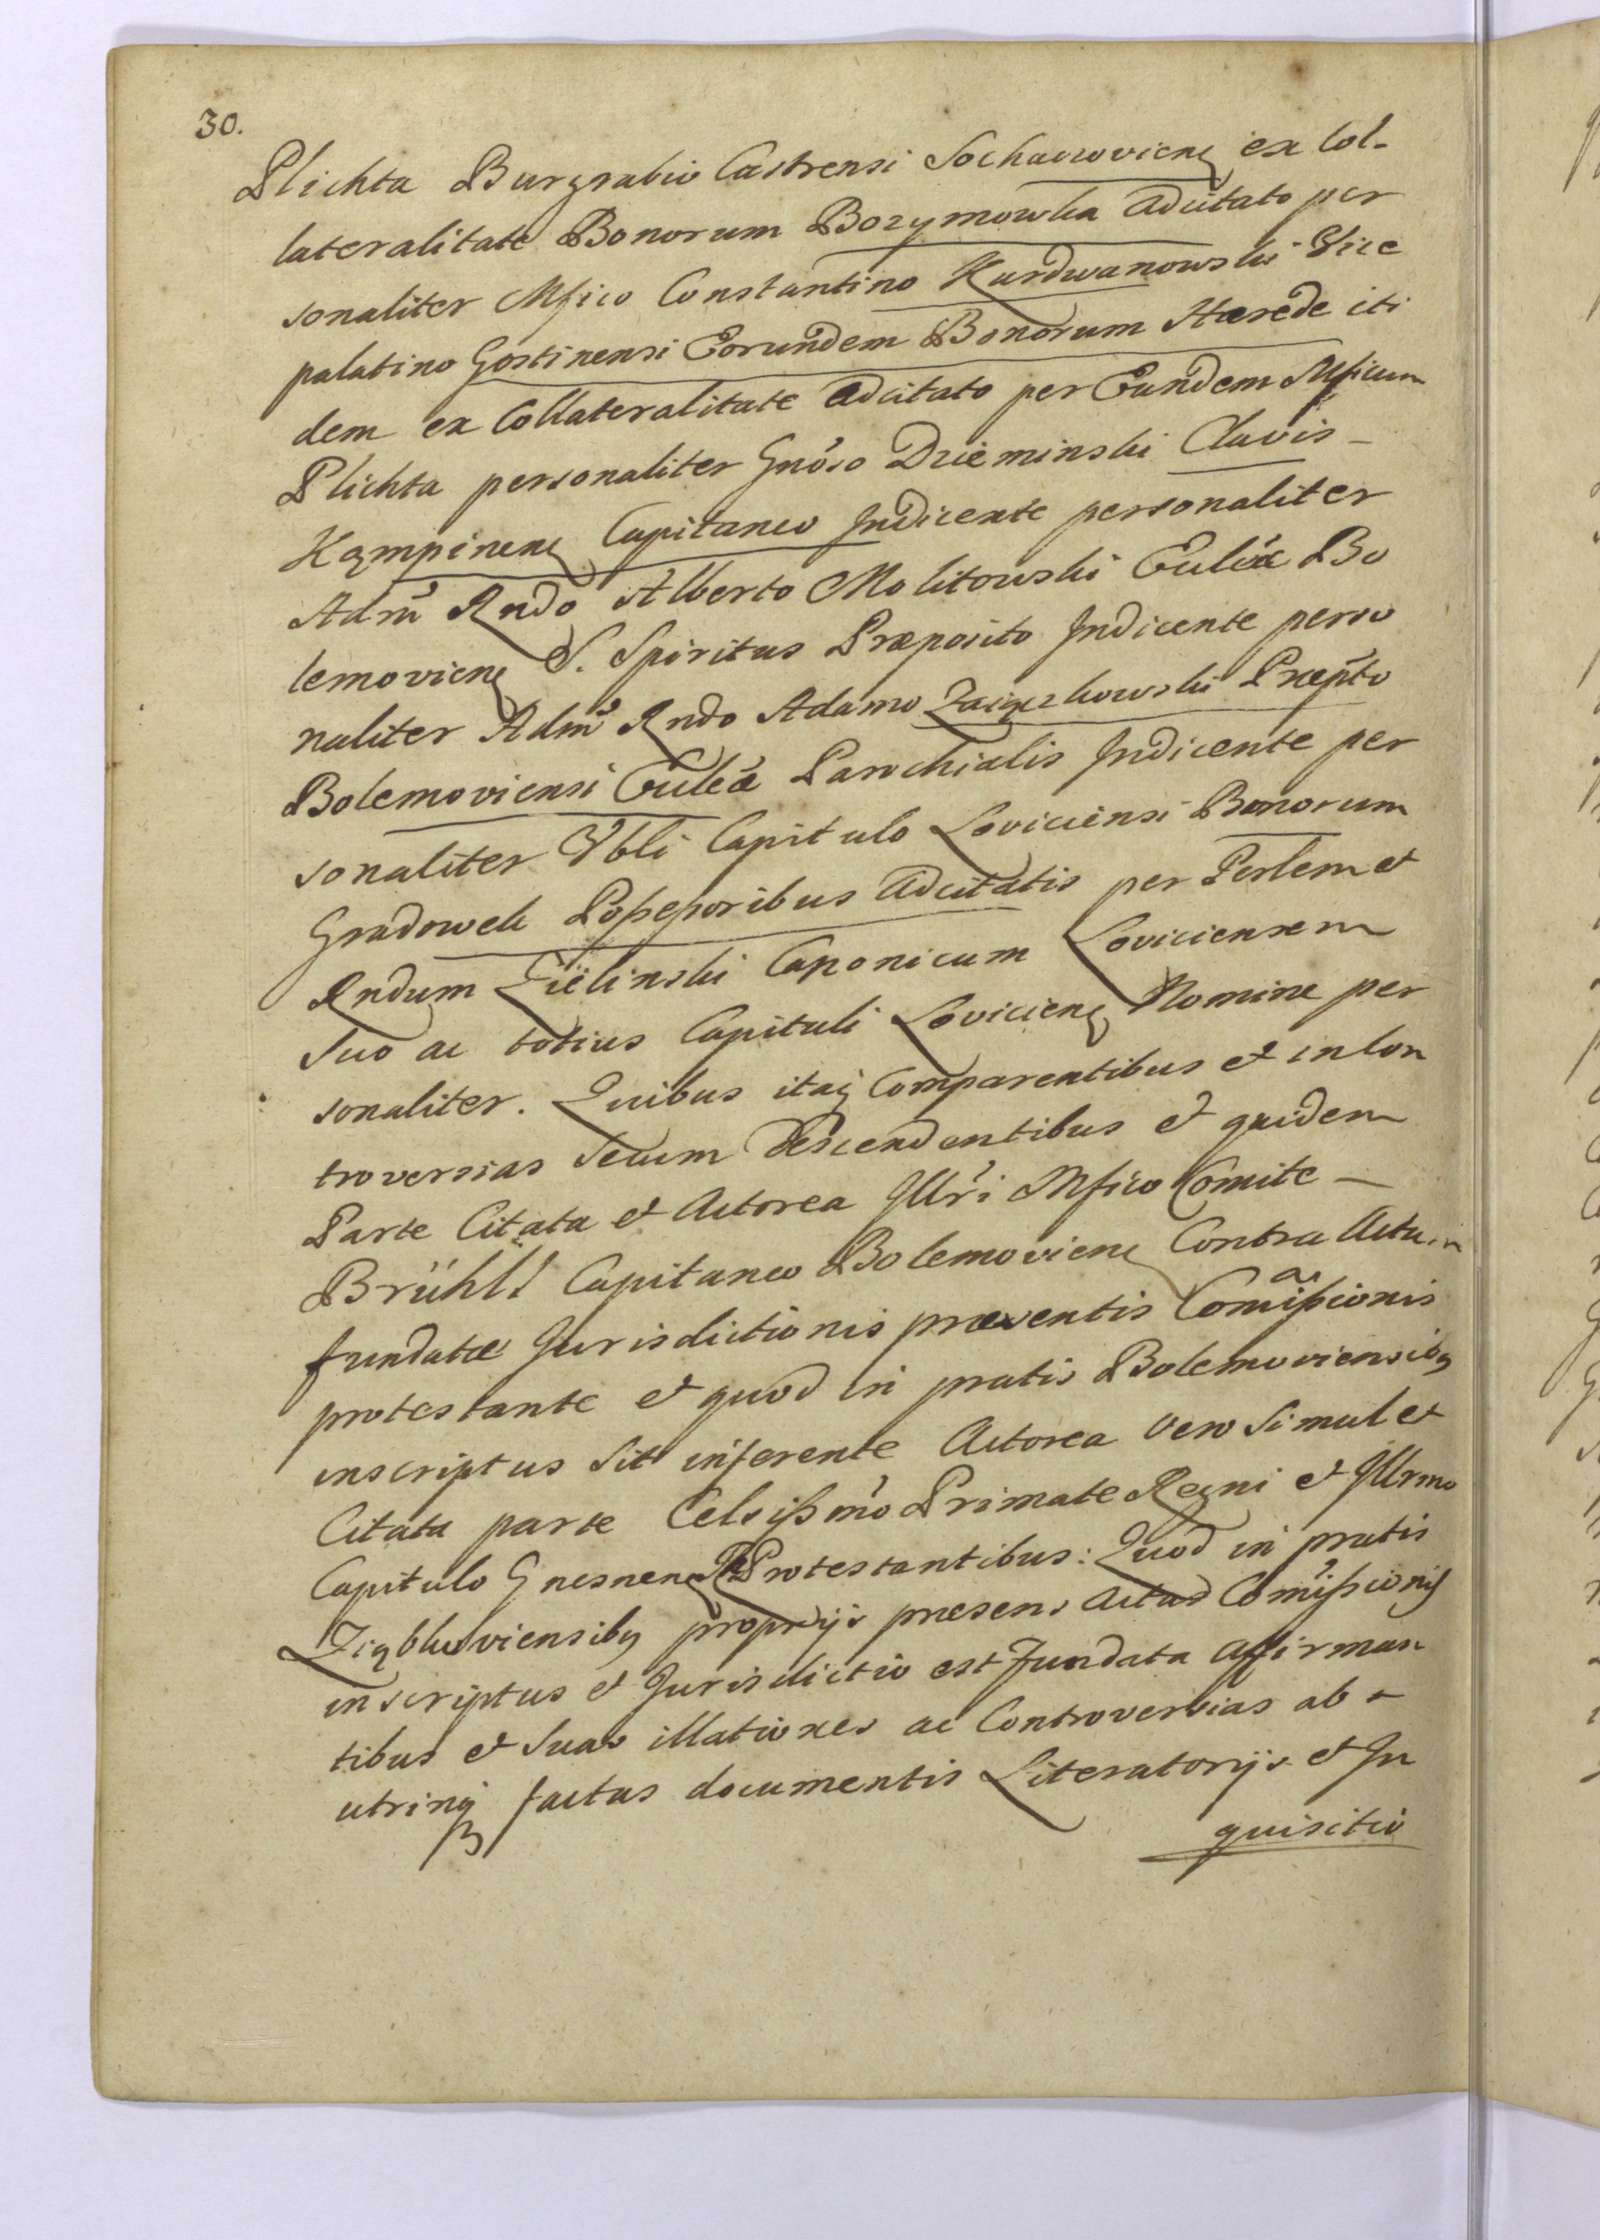 30.
Plichta Burgrabio Castrensi Sochaczovieng ex Col-
lateralitate Bonorum Bozymowka adcitato per
sonaliter Mfico Constantino Kurdwanowski Vice
palatino Gostinensi Eorundem Bonorum Hærede iti
dem ex Collateralitate adcitato per Eundem Mficum
Plichta personaliter Gnoso Dzieminski Clavis -
Kampineng Capitaneo Indicente personaliter
Adm Rndo Alberto Molitowski Ecclæ Bo
lemovieng S. Spiritus Præposito Indicente perso
naliter Adm Rndo Adamo Zaigzkowski Præpto
Bolemoviensi Ecclæ Parochialis Indicente per
sonaliter Vbli Capitulo Loviciensi Bonorum
Gradowek Poßeßoribus adcitatis per Perlem et
Rndum Zielinski Canonicum Loviciensem
Suo ac totius Capituli Lovicieng Nomine per
sonaliter. Quibus itaq Comparentibus et in Con
troversias Secum Descendentibus et quidem
Parte Citata et Actorea Illri Mfico Comite -
Brühll Capitaneo Bolemovieng Contra Actum
fundatæ Jurisdictionis præventis Comißionis
protestante et quod in pratis Bolemoviensibg
inscriptus Sit inferente Actorea vero Simul et
Citata parte Celsißmo Primate Regni et Illrmo
Capitulo Gnesneng Protestantibus: Quod in pratis
Ziąbkoviensibg proprijs præsens Actus Comißionis
inscriptus et Jurisdictio est fundata affirman
tibus et Suas illationes ac Controversias ab -
utrinq factas documentis Literatorijs et In
quisitio